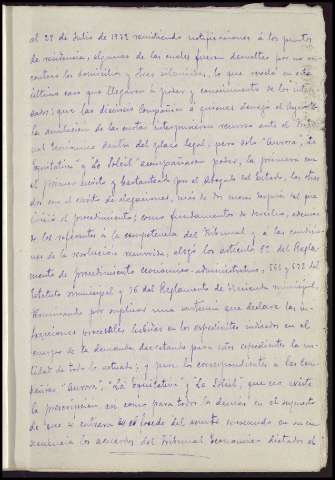 al 28 de Julio de 1932 remitiendo notificaciones á los puntos
de residencia, algunas de las cuales fueron devueltas por no en-
contrar los domicilios y otras
último caso que llegaron á poder y conocimiento de los inte-
sados; que las diversas Compañias á quienes denegó el
la anulacion de las cuotas interpusieron recurso ante el Tribu-
nal Económico dentro del plazo legal, pero solo "Aurora", "La
Equitativa" y "La Soleil" acompañaron poder, la primera con
el primer escrito y bastanteado por el Abogado del Estado, las otras
dos con el escrito de alegaciones, más de dos meses después del que
inició el procedimiento; como fundamentos de derecho, ademas
de los referentes á la competencia del Tribunal y á las condicio-
nes de la resolución recurrida, alegó los articulos 82 del Regla-
mento de procedimiento economico-administrativo, 561 y 572 del
Estatuto municipal y 76 del Reglamento de Hacienda municipal,
terminando por suplicar una sentencia que declare las in-
fracciones procesales habidas en los expedientes citados en el
cuerpo de la demanda decretando para estos expedientes la nu-
lidad de todo lo actuado; y para los correspondientes á las Com-
pañias "Aurora", "La Equitativa" y "La Soleil", que no existe
la prescripción, asi como para todos los demás en el supuesto
de que se entrara en el fondo del asunto revocando en su con-
secuencia los acuerdos del Tribunal Económico dictados el